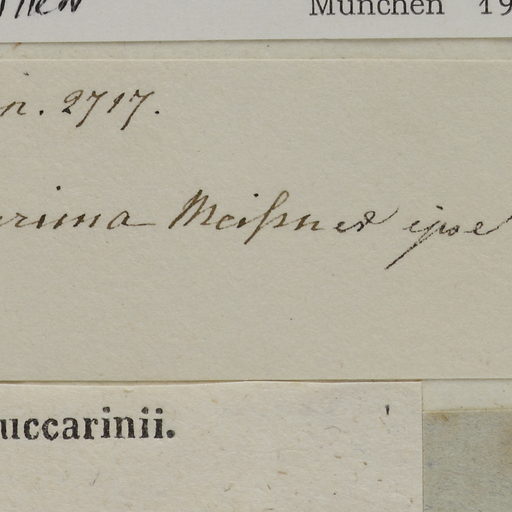 München 19
n. 2717.
rima Meißner ipse
uccarinii.